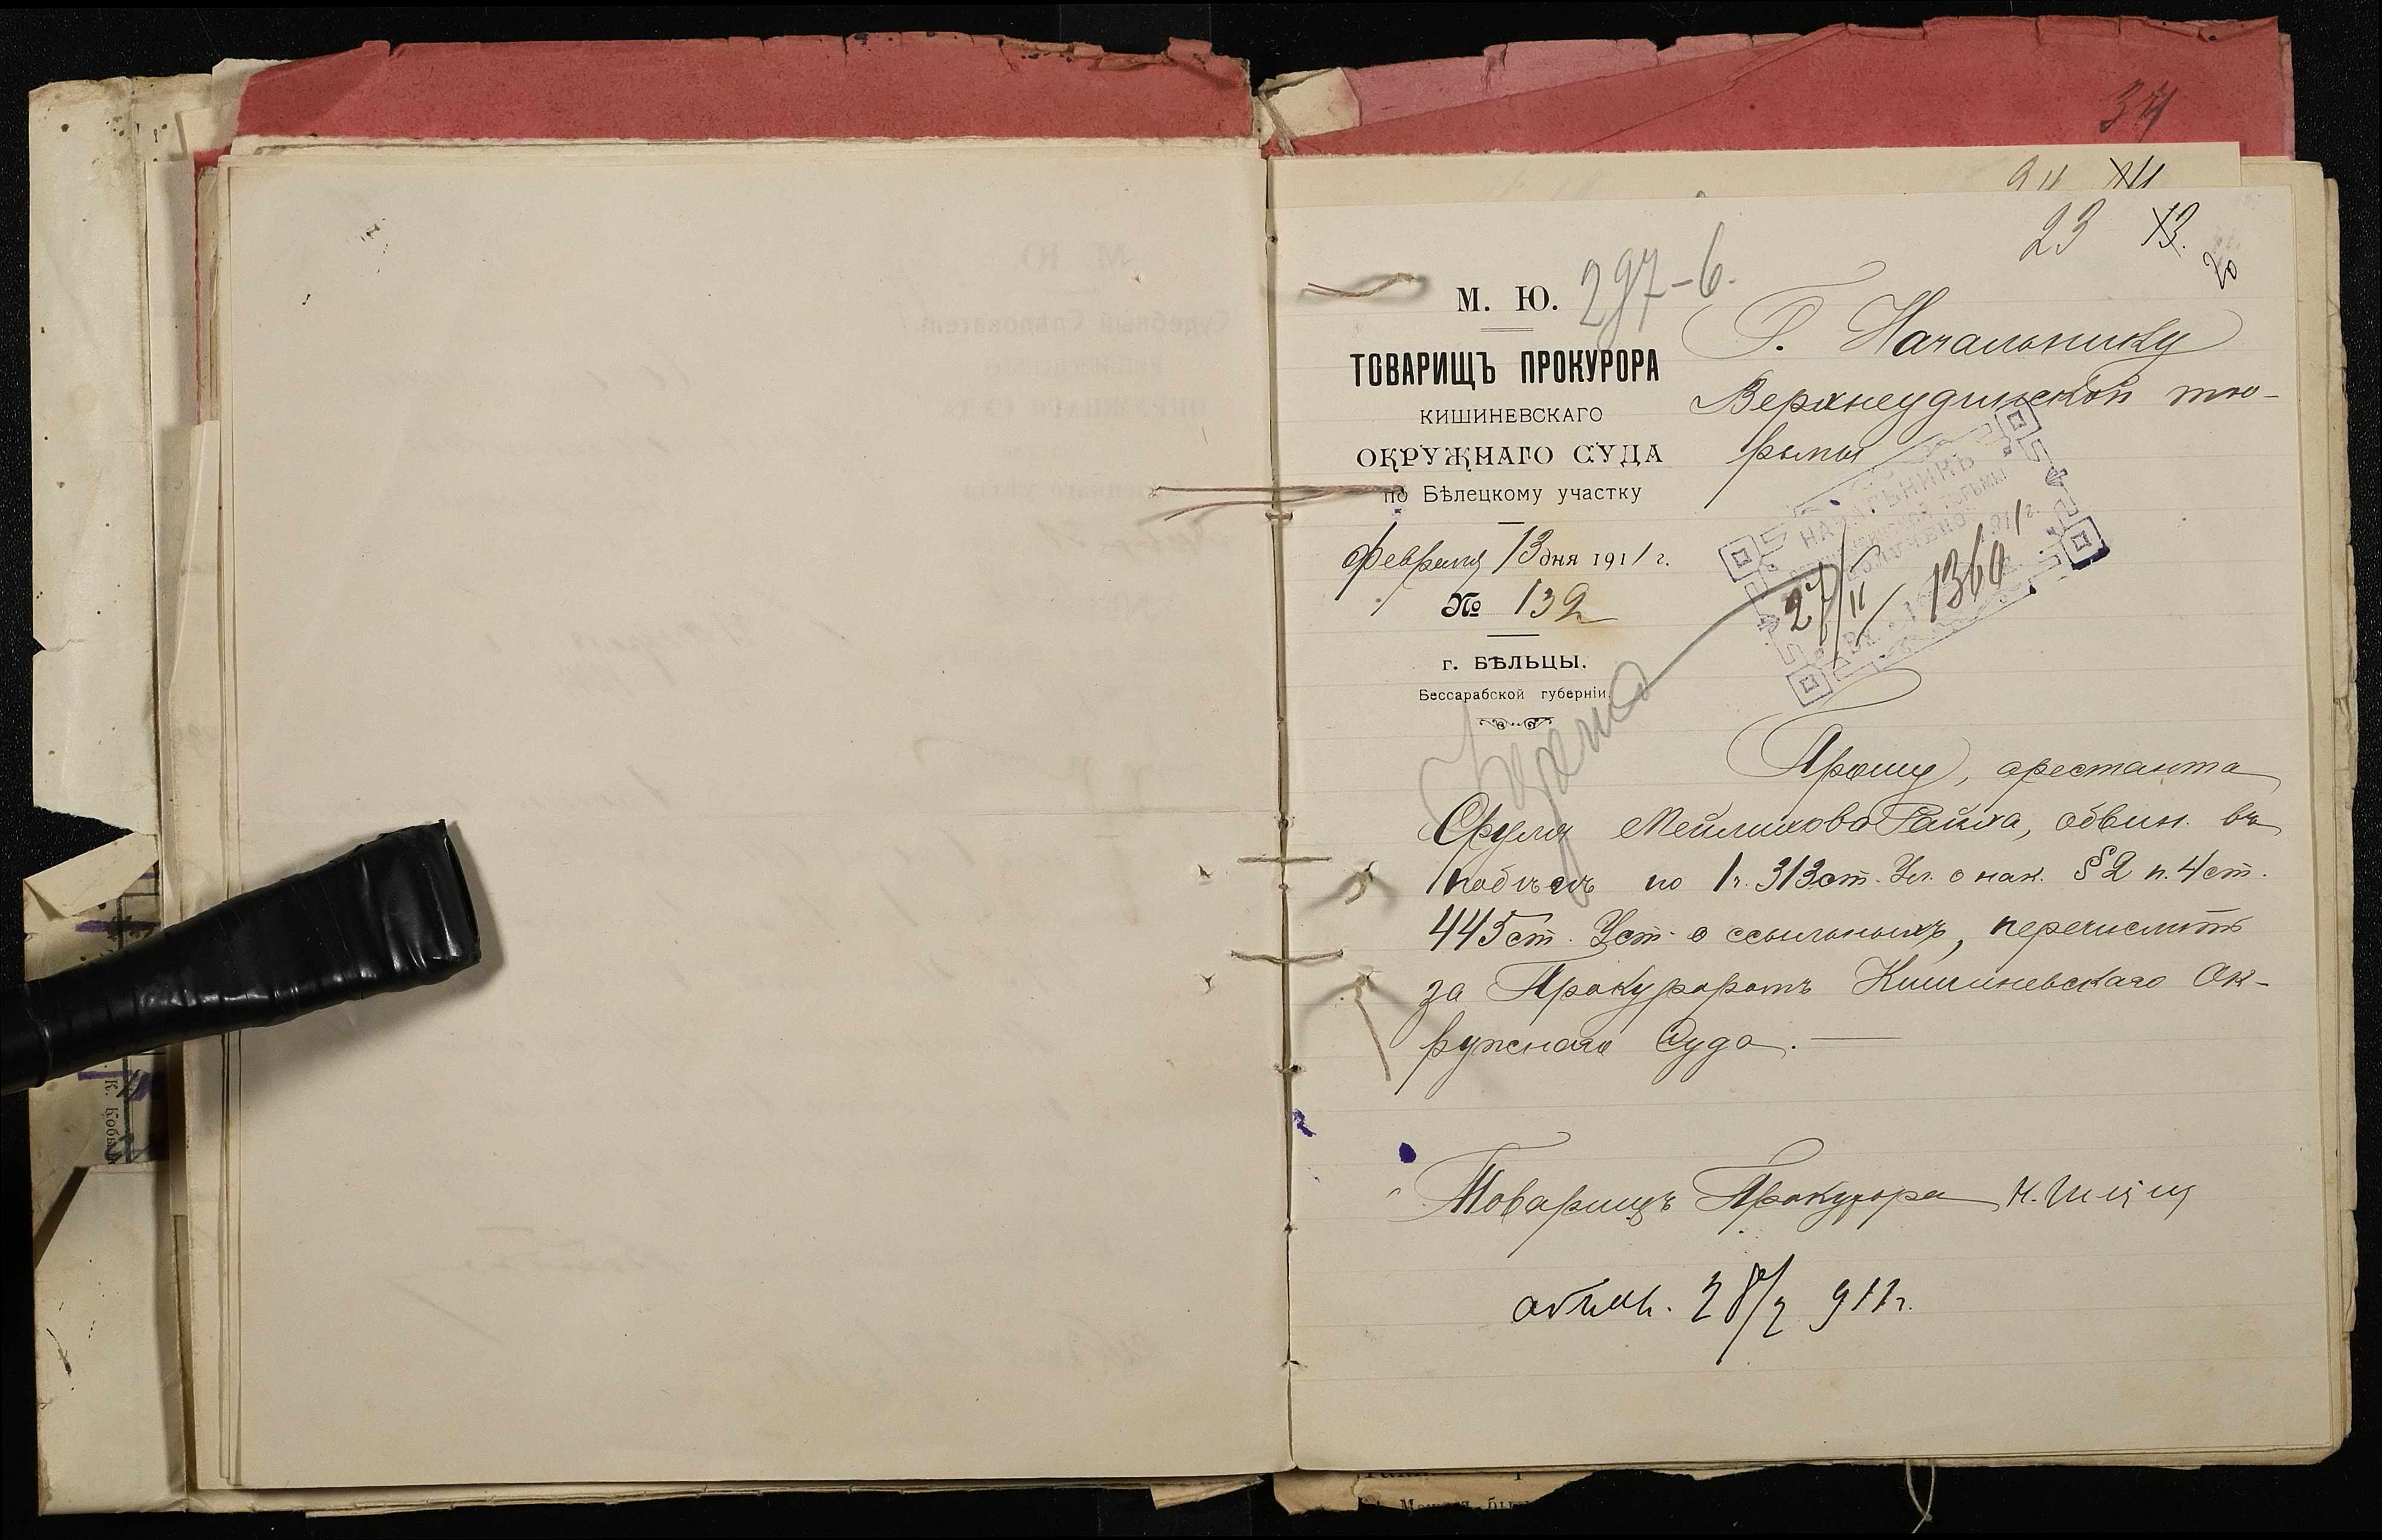 34
23 13.
20
М. Ю. 297-6.
ТОВАРИЩЪ ПРОКУРОРА
КИШИНЕВСКАГО
ОКРУЖНАГО СУДА
по Бѣлецкому участку
Февраля 13 дня 1911 г.
№ 132
г. БѢЛЬЦЫ.
Бессарабской губерніи.
Г. Начальнику
Верхнеудинской тю-
рьмы
НАЧАЛЬНИКЪ
ТЮРЬМЫ
ПОЛУЧЕНО 1911 г.
27/II 1360
Прошу, арестанта
Сруля Мейлихова Райха, обвин. въ
побѣгѣ по 1 ч. 313 ст. Ул. о нак. § 2 п. 4 ст.
445 ст. Уст. о ссыльныхъ, перечислить
за Прокуроромъ Кишиневскаго Ок-
ружнаго Суда.
Товарищъ Прокурора
объяв. 28/2 911 г.